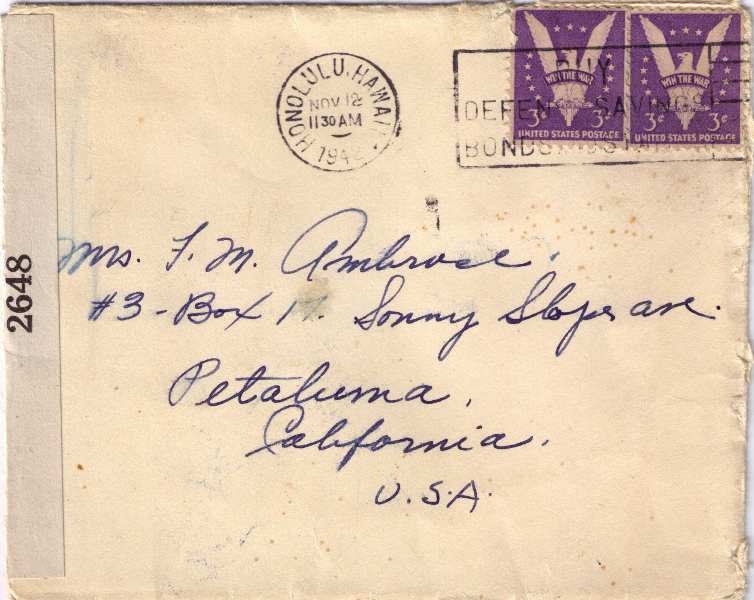 HONOLULU, HAWAII
NOV 12
11 30 AM
BUY
DEFENSE SAVINGS
BONDS
WIN THE WAR
3¢ 3¢
UNITED STATES POSTAGE
WIN THE WAR
3¢ 3¢
UNITED STATES POSTAGE
2648
Mrs. F. M. Ambrose.
#3 - Box Sonny Slope ave.
Petaluma,
California.
U.S.A.